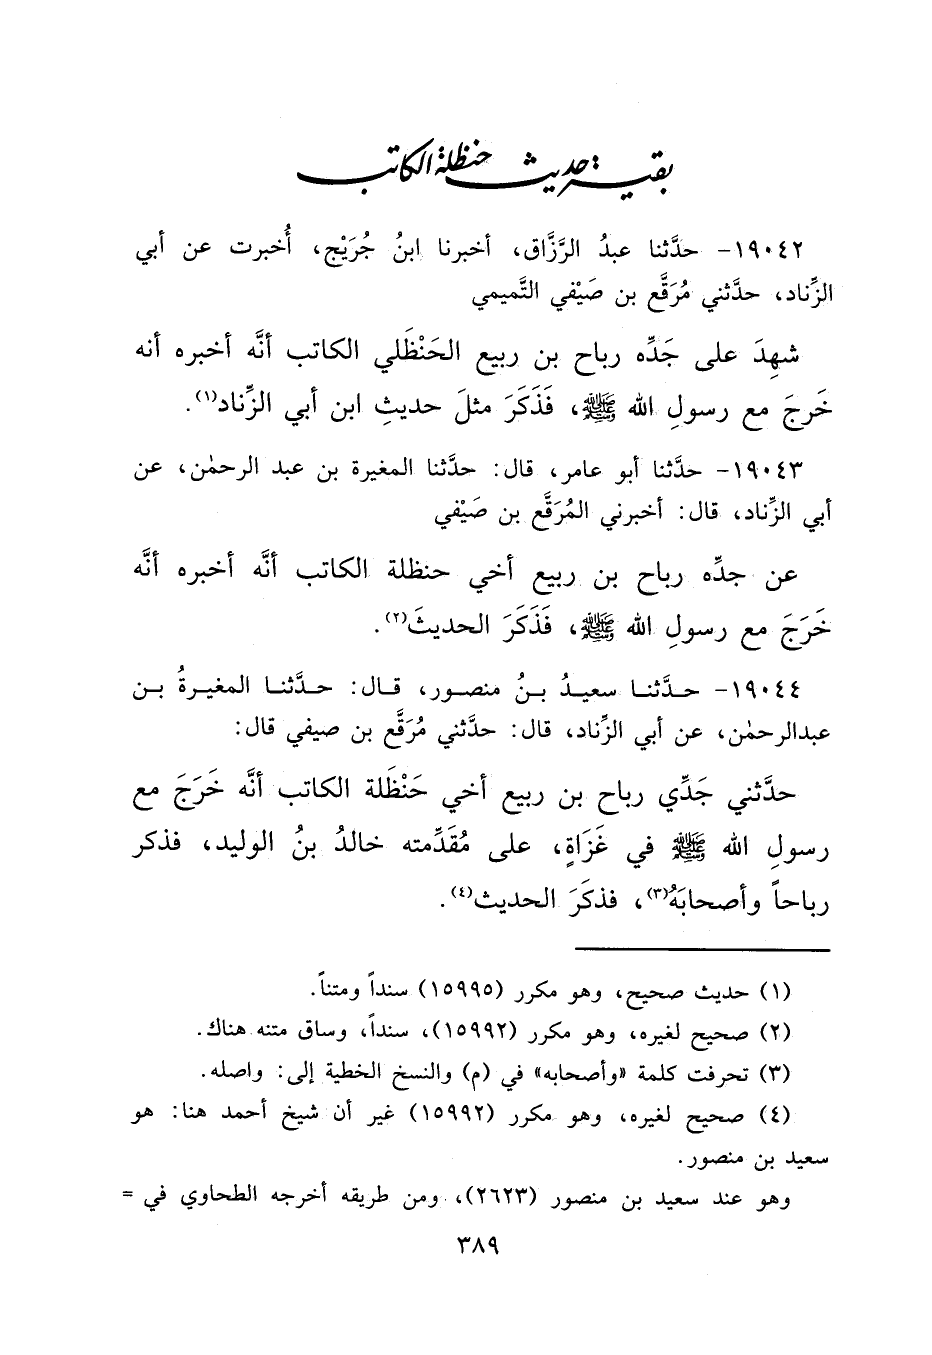 بقية حديث حنظلة الكاتب
١٩٠٤٢- حدَّثنا عبدُ الرَّزَّاق، أخبرنا ابنُ جُرَيْج، أُخبرت عن أبي
الزِّناد، حدَّثني مُرَقَّع بن صَيْفي التَّميمي
شهِدَ على جَدِّه رباح بن ربيع الحَنْظَلي الكاتب أنَّه أخبره أنه
خَرجَ مع رسولِ الله ﷺ، فَذَكَرَ مثلَ حديثِ ابن أبي الزِّناد(١).
١٩٠٤٣- حدَّثنا أبو عامر، قال: حدَّثنا المغيرة بن عبد الرحمٰن، عن
أبي الزِّناد، قال: أخبرني المُرَقَّع بن صَيْفي
عن جدِّه رباح بن ربيع أخي حنظلة الكاتب أنَّه أخبره أنَّه
خَرَجَ مع رسولِ الله ﷺ، فَذَكَرَ الحديثَ(٢).
١٩٠٤٤- حدَّثنا سعيدُ بنُ منصور، قال: حدَّثنا المغيرةُ بن
عبدالرحمٰن، عن أبي الزِّناد، قال: حدَّثني مُرَقَّع بن صيفي قال:
حدَّثني جَدِّي رباح بن ربيع أخي حَنْظَلة الكاتب أنَّه خَرَجَ مع
رسولِ الله ﷺ في غَزَاةٍ، على مُقَدِّمته خالدُ بنُ الوليد، فذكر
رباحاً وأصحابَهُ(٣)، فذكَرَ الحديث(٤).
(١) حديث صحيح، وهو مكرر (١٥٩٩٥) سنداً ومتناً.
(٢) صحيح لغيره، وهو مكرر (١٥٩٩٢)، سنداً، وساق متنه هناك.
(٣) تحرفت كلمة «وأصحابه» في (م) والنسخ الخطية إلى: واصله.
(٤) صحيح لغيره، وهو مكرر (١٥٩٩٢) غير أن شيخ أحمد هنا: هو
سعيد بن منصور.
وهو عند سعيد بن منصور (٢٦٢٣)، ومن طريقه أخرجه الطحاوي في =
٣٨٩